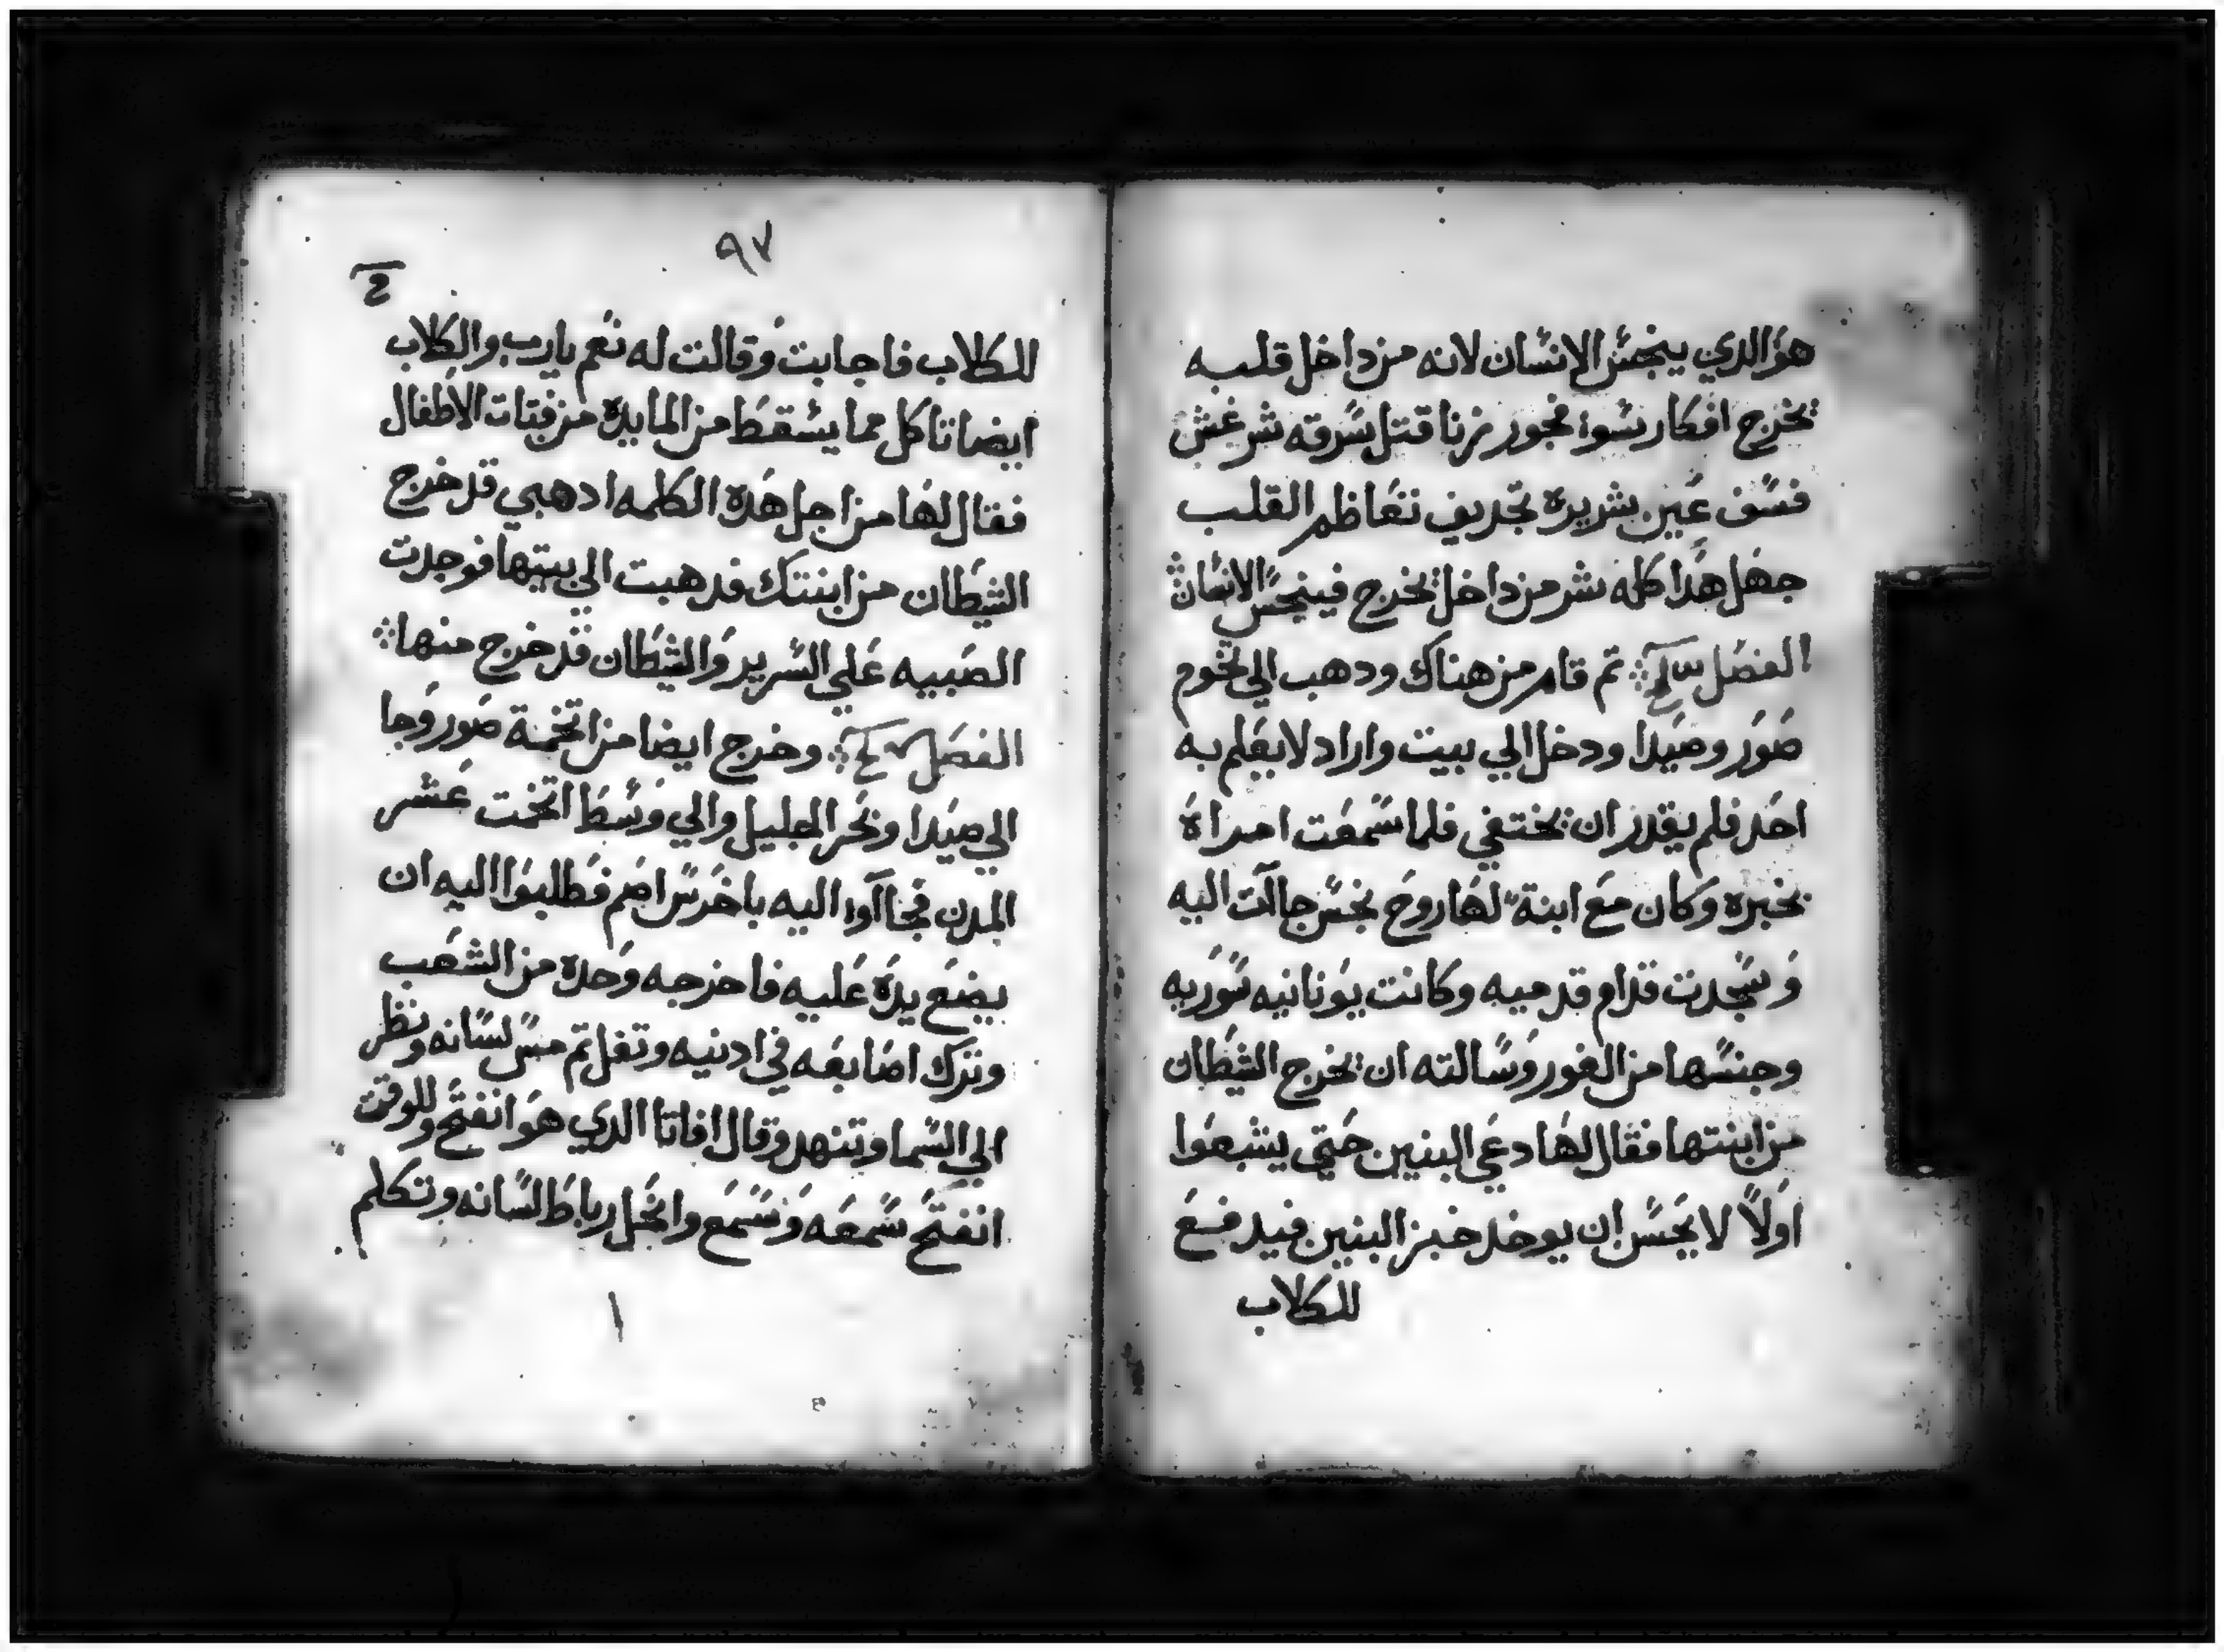 هو الدي ينجس الانسان لانه من داخل قلبه
تخرج افكار سوا فجور زنا قتل سرقه شر غش
فسق عين شريره تجديف تعاظم القلب
جهل هدا كله شر من داخل تخرج فينجس الانسان
الفصل ثم قام من هناك ودهب الي تخوم
صور وصيدا ودخل الي بيت واراد لا يعلم به
احد فلم يقدر ان يختفي فلما سمعت امراة
بخبره وكان مع ابنة لها روح نجس جاآت اليه
وسجدت قدام قدميه وكانت يونانيه سوريه
وجنسها من الغور وسالته ان تخرج الشيطان
من ابنتها فقال لها دعي البنين حتي يشبعوا
اولاً لا يحسن ان يوخد خبز البنين فيدفع
للكلاب
٩٧
للكلاب فاجابت وقالت له نعم يارب والكلاب
ايضا تاكل مما يسقط من المايده من فتات الاطفال
فقال لها من اجل هده الكلمه ادهبي قد خرج
الشيطان من ابنتك فدهبت الي بيتها فوجدت
الصبيه علي السرير والشيطان قد خرج منها
الفصل وخرج ايضا من اتخمة صور وجا
الي صيدا ونحر الجليل والي وسط اتخت عشر
المدن فجاآوا اليه باخرس اصم فطلبوا اليه ان
يضع يده عليه فاخرجه وحده من الشعب
وترك اصابعه في ادنيه وتفل تم مس لسانه ونظر
الي السما وتنهد وقال افاتا الدي هو انفتح وللوقت
انفتح سمعه وسمع وانحل رباط لسانه وتكلم